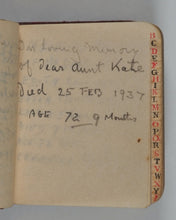 In loving memory
of dear Aunt Kate
Died 25 FEB 1937
AGE 72 9 Months
B
C
D
E
F
G
H
I
J
K
L
M
N
O
P
Q
R
S
T
V
W
X
Y